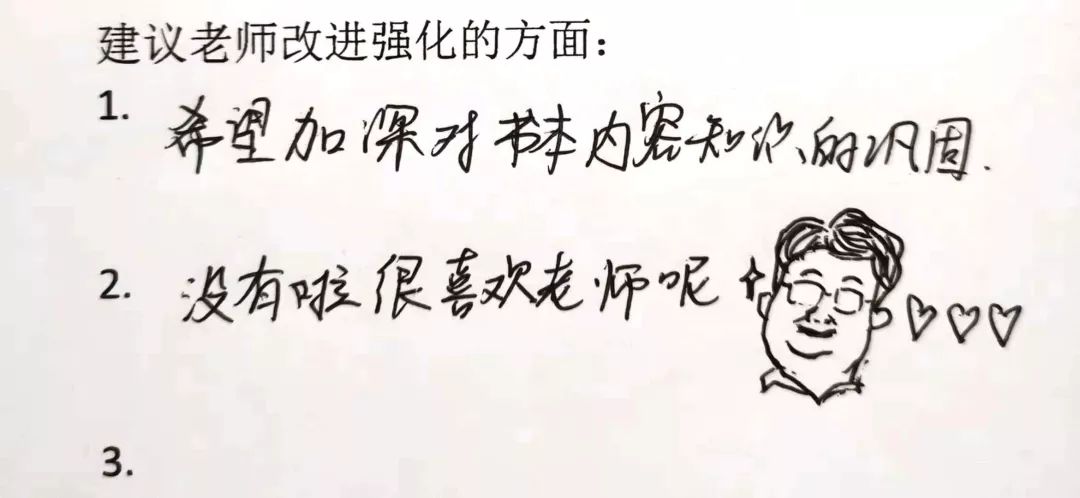 建议老师改进强化的方面：
1. 希望加深对书本内容知识的巩固.
2. 没有啦很喜欢老师呢
3.